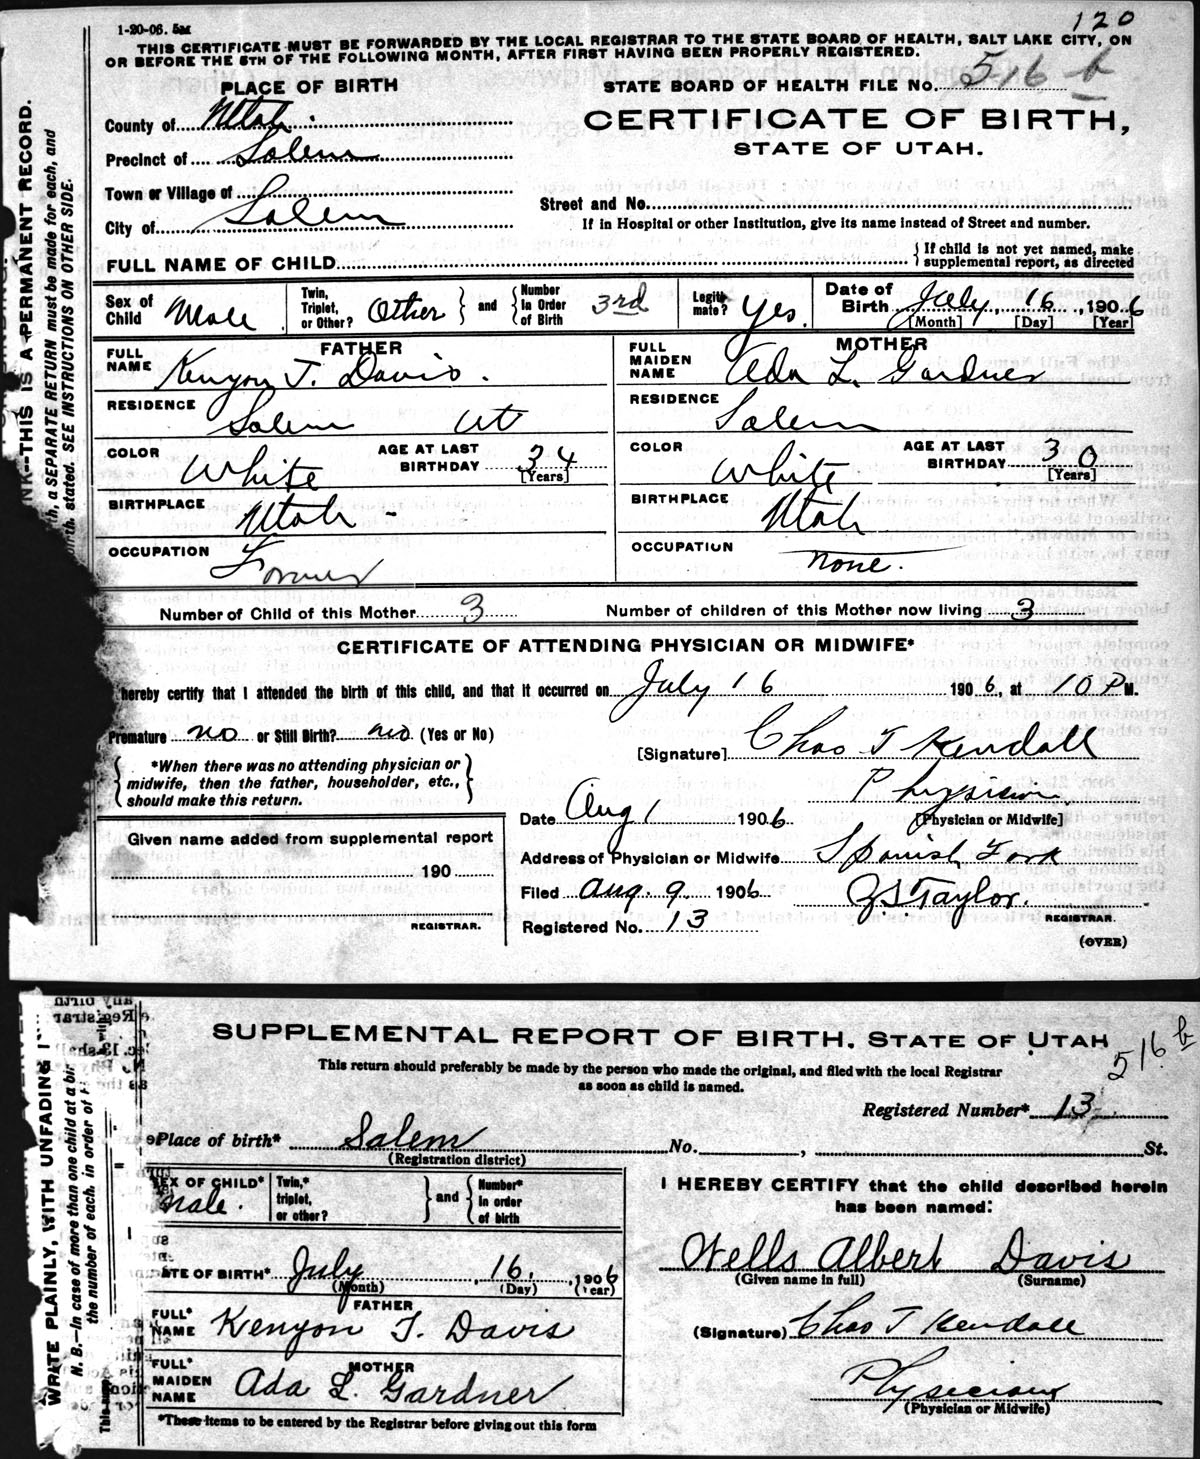 1-20-06. 5M
120
THIS CERTIFICATE MUST BE FORWARDED BY THE LOCAL REGISTRAR TO THE STATE BOARD OF HEALTH, SALT LAKE CITY, ON
OR BEFORE THE 5TH OF THE FOLLOWING MONTH, AFTER FIRST HAVING BEEN PROPERLY REGISTERED.
PLACE OF BIRTH
STATE BOARD OF HEALTH FILE No. 516 b
County of Utah.
CERTIFICATE OF BIRTH,
STATE OF UTAH.
Precinct of Salem
Town or Village of
City of Salem
Street and No.
If in Hospital or other Institution, give its name instead of Street and number.
FULL NAME OF CHILD
{ If child is not yet named, make
supplemental report, as directed
Sex of Child Male
Twin, Triplet, or Other? Other } and { Number In Order of Birth 3rd
Legitimate? Yes.
Date of Birth July 16, 1906
[Month] [Day] [Year]
FATHER
FULL NAME Kenyon T. Davis.
MOTHER
FULL MAIDEN NAME Ada L. Gardner
RESIDENCE Salem Ut
RESIDENCE Salem
COLOR White AGE AT LAST BIRTHDAY 34 [Years]
COLOR White AGE AT LAST BIRTHDAY 30 [Years]
BIRTHPLACE Utah -
BIRTHPLACE Utah
OCCUPATION Farmer
OCCUPATION None.
Number of Child of this Mother 3
Number of children of this Mother now living 3
CERTIFICATE OF ATTENDING PHYSICIAN OR MIDWIFE*
hereby certify that I attended the birth of this child, and that it occurred on July 16 1906, at 10 P M.
Premature no or Still Birth? no (Yes or No)
[Signature] Chas T Kendall
{ *When there was no attending physician or
midwife, then the father, householder, etc.,
should make this return. }
Physician.
[Physician or Midwife]
Date Aug 1 1906
Address of Physician or Midwife Spanish Fork
Filed Aug. 9 1906
Z S Taylor.
REGISTRAR.
Registered No. 13
(OVER)
Given name added from supplemental report
190
REGISTRAR.
NK--THIS IS A PERMANENT RECORD.
th, a SEPARATE RETURN must be made for each, and
birth, stated. SEE INSTRUCTIONS ON OTHER SIDE.
SUPPLEMENTAL REPORT OF BIRTH, STATE OF UTAH
516 b
This return should preferably be made by the person who made the original, and filed with the local Registrar
as soon as child is named.
Registered Number* 13
Place of birth* Salem No. , St.
(Registration district)
SEX OF CHILD* male.
Twin,* triplet, or other? } and { Number* in order of birth
I HEREBY CERTIFY that the child described herein
has been named:
DATE OF BIRTH* July 16, 1906
(Month) (Day) (Year)
Wells Albert Davis
(Given name in full) (Surname)
FATHER
FULL* NAME Kenyon T. Davis
(Signature) Chas T Kendall
MOTHER
FULL* MAIDEN NAME Ada L. Gardner
Physician
(Physician or Midwife)
*These items to be entered by the Registrar before giving out this form
WRITE PLAINLY, WITH UNFADING I
N. B.—In case of more than one child at a bir
the number of each, in order of
This sup